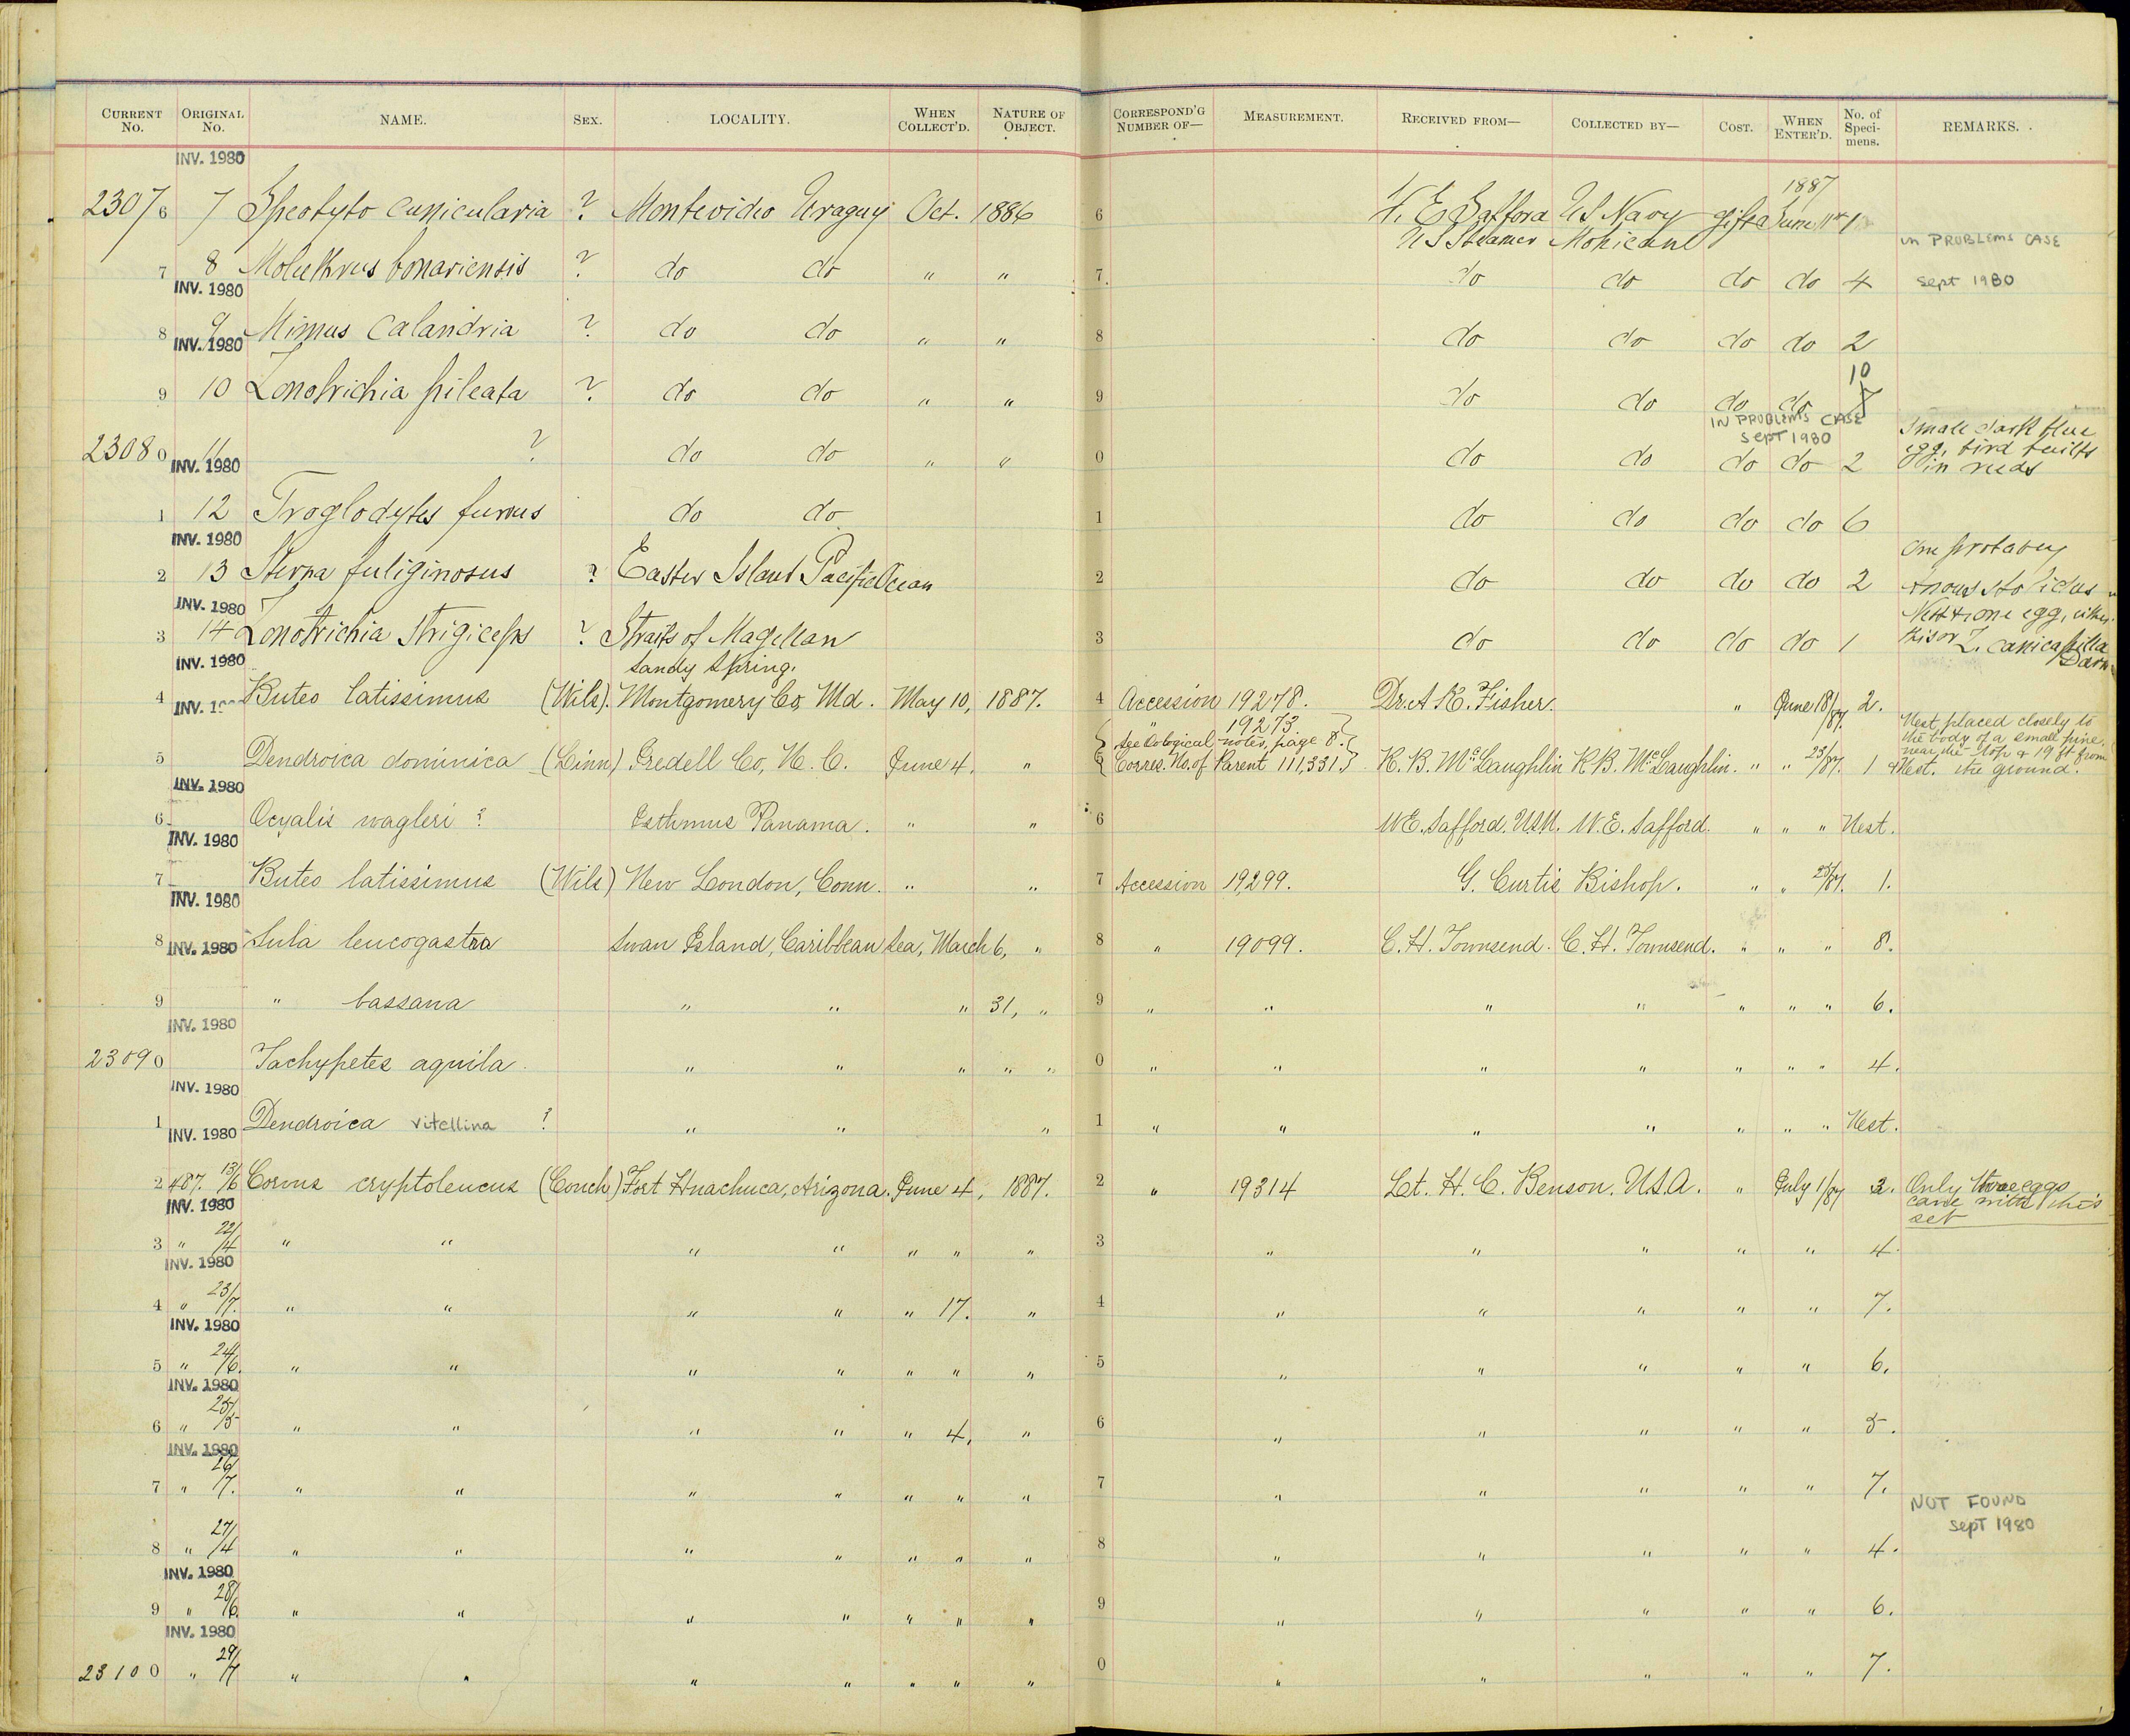 CURRENT No. ORIGINAL No. NAME. SEX. LOCALITY. WHEN COLLECT'D. NATURE OF OBJECT. CORRESPOND'G NUMBER OF— MEASUREMENT. RECEIVED FROM— COLLECTED BY— COST. WHEN ENTER'D. No. of Speci-mens. REMARKS.
INV. 1980
1887
23076 7 Speotyto cunicularia ? Montevideo Uraguy Oct. 1886 6 W. E Safford US Navy gift June 11th 1
US Steamer Mohican in PROBLEMS CASE
7 8 Moluthrus bonariensis ? do do " " 7 do do do do 4 Sept 1980
INV. 1980
8 9 Mimus Calandria ? do do " " 8 do do do do 2
INV. 1980
10
9 10 Zonotrichia pileata ? do do " " 9 do do do do 7
IN PROBLEMS CASE
Sept 1980
23080 11 ? do do " " 0 do do do do 2 Small dark blue egg, bird builts in reeds
INV. 1980
1 12 Troglodytes furvus do do 1 do do do do 6
INV. 1980
2 13 Sterna fuliginosus ? Easter Island Pacific Ocean 2 do do do do 2 One probabey Anous stolidus
INV. 1980
3 14 Zonotrichia Strigiceps ? Straits of Magellan 3 do do do do 1 Nest & one egg, either this or Z. canicapilla Darw
INV. 1980
Sandy Spring,
4 Buteo latissimus (Wils). Montgomery Co, Md. May 10, 1887. 4 Accession 19278. Dr. A K. Fisher. " June 18/87. 2.
INV. 19
" 19273
See Oological notes, page 8.
5 Dendroica dominica (Linn) Iredell Co, N. C. June 4. " 5 Corres. No. of Parent 111,331. R. B. McLaughlin R B. McLaughlin. " " 23/87. 1 & Nest. Nest placed closely to the body of a small pine near the top & 19 ft from the ground.
INV. 1980
6 Ocyalis wagleri ? Isthmus Panama. " " 6 W.E. Safford. U.S.N. W. E. Safford. " " " Nest.
INV. 1980
7 Buteo latissimus (Wils) New London, Conn. " " 7 Accession 19,299. G. Curtis Bishop. " " 25/87. 1.
INV. 1980
8 INV. 1980 Sula leucogastra Swan Island, Caribbean Sea, March 6, " 8 " 19099. C. H. Townsend. C. H. Townsend. " " " 8.
9 " bassana " " " 31, " 9 " " " " " " " 6.
INV. 1980
23090 Tachypetes aquila. " " " " " 0 " " " " " " " 4.
INV. 1980
1 INV. 1980 Dendroica vitellina ? " " " 1 " " " " " " " Nest.
2 487. 13/6 Corvus cryptoleucus (Couch) Fort Huachuca, Arizona. June 4, 1887. 2 " 19314 Lt. H. C. Benson. U.S.A. " July 1/87 3. Only three eggs came with this set
INV. 1980
3 " 22/4 " " " " " " " 3 " " " " " 4.
INV. 1980
4 " 23/7. " " " " " 17. " 4 " " " " " 7.
INV. 1980
5 " 24/6. " " " " " " " 5 " " " " " 6.
INV. 1980
6 " 25/5 " " " " " 4. " 6 " " " " " 5.
INV. 1980
7 " 26/7. " " " " " " " 7 " " " " " 7.
NOT FOUND
Sept 1980
8 " 27/4 " " " " " " " 8 " " " " " 4.
INV. 1980
9 " 28/6. " " " " " " " 9 " " " " " 6.
INV. 1980
23100 " 29/7 " " " " " " " 0 " " " " " 7.